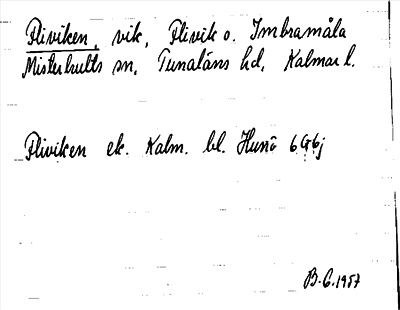 Fliviken, vik, Flivik o. Imbramåla
Misterhults sn, Tunaläns hd, Kalmar l.
Fliviken ek. Kalm. bl. Hunö 6G6j
B.G. 1957